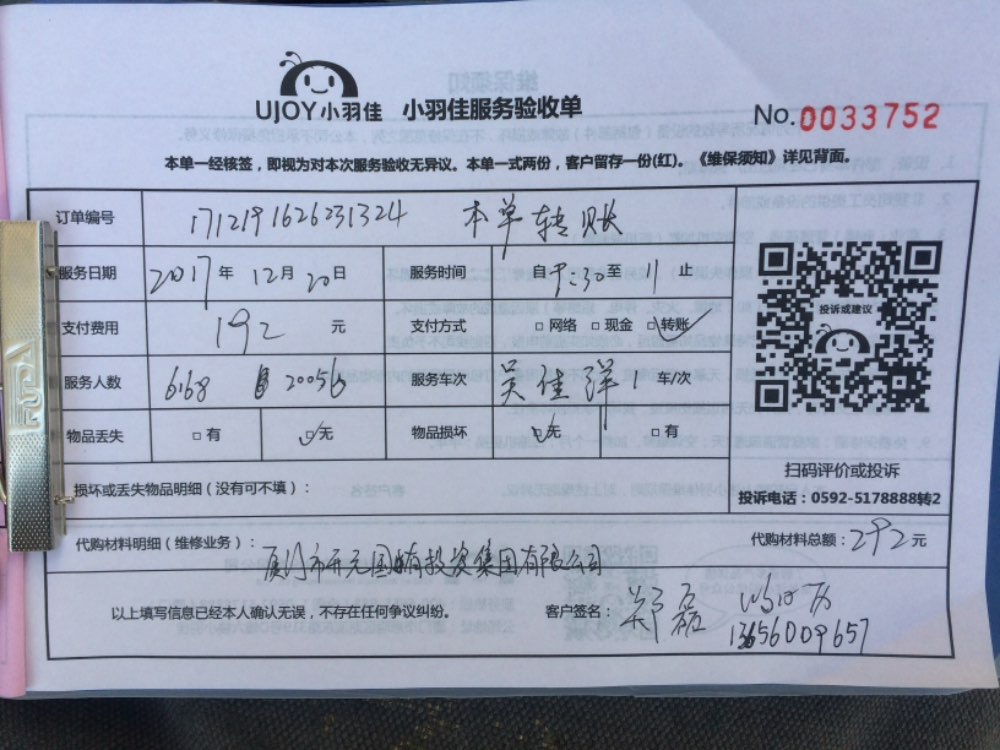 UJOY小羽佳 小羽佳服务验收单
No.0033752
本单一经核签，即视为对本次服务验收无异议。本单一式两份，客户留存一份(红)。《维保须知》详见背面。
订单编号 1712191626231324 本单转账
服务日期 2017年12月20日 服务时间 自 :30至11止
支付费用 192元 支付方式 □网络 □现金 □转账
服务人数 6168 20056 服务车次 吴佳洋 1 车/次
物品丢失 □有 □无 物品损坏 □无 □有
投诉或建议
扫码评价或投诉
投诉电话：0592-5178888转2
损坏或丢失物品明细（没有可不填）：
代购材料明细（维修业务）：厦门市开元国有投资集团有限公司
代购材料总额：292元
以上填写信息已经本人确认无误，不存在任何争议纠纷。 客户签名：郑磊
13656009657